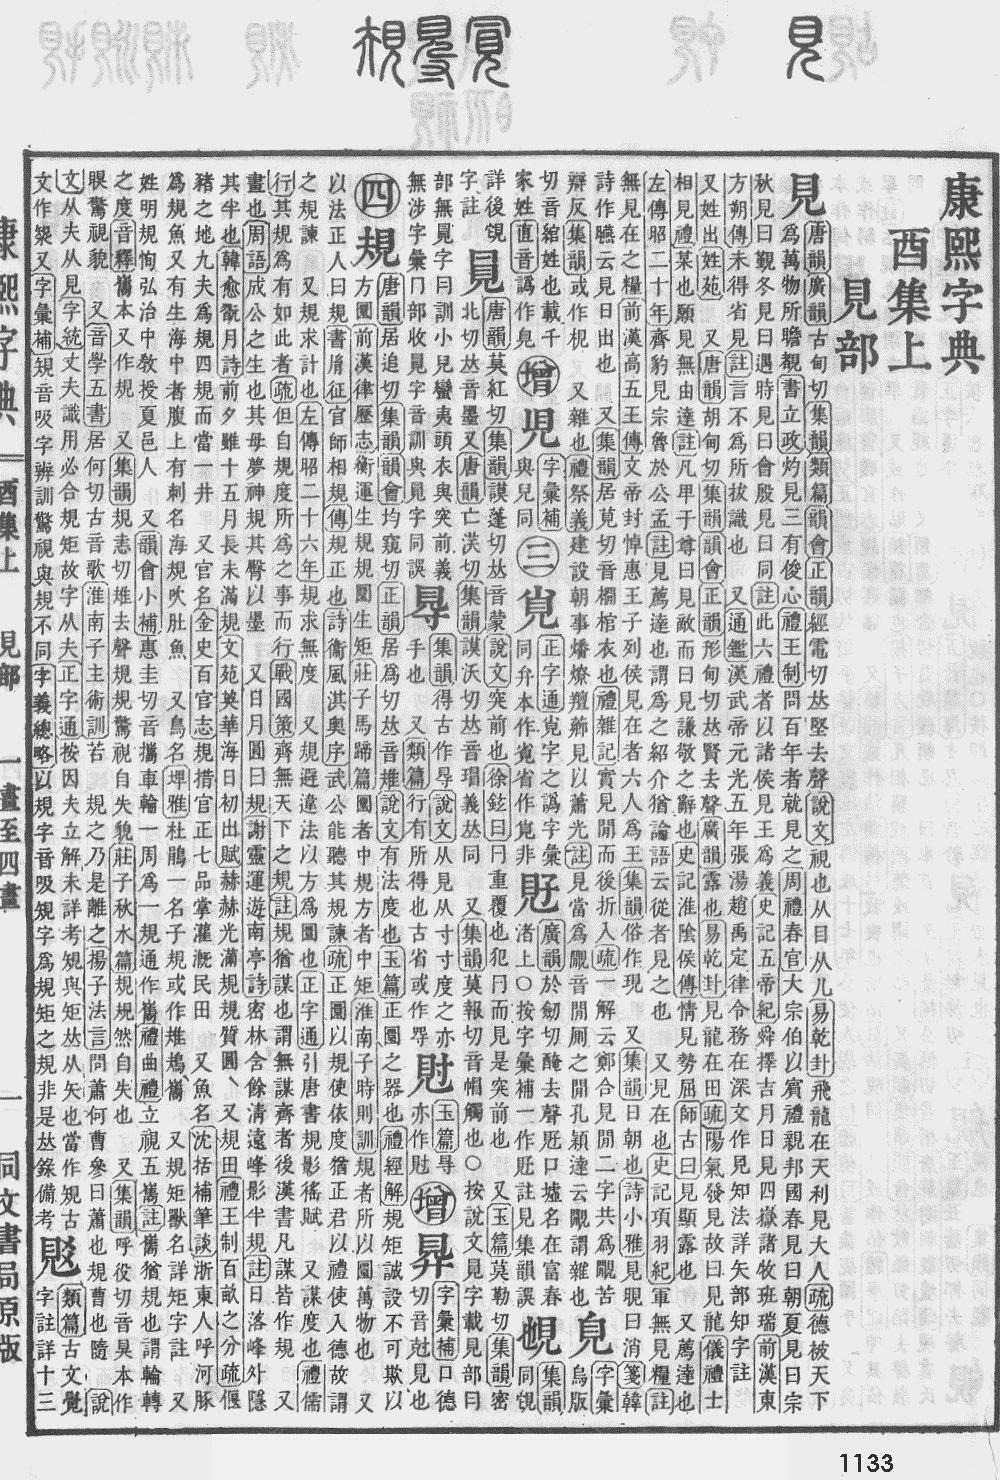 康熙字典
酉集上
見部
見 唐韻廣韻古甸切集韻類篇韻會正韻經電切𠀤堅去聲說文視也从目从儿易乾卦飛龍在天利見大人疏德被天下
爲萬物所瞻覩書立政灼見三有俊心禮王制問百年者就見之周禮春官大宗伯以賔禮親邦國春見曰朝夏見曰宗
秋見曰覲冬見曰遇時見曰會殷見曰同註此六禮者以諸侯見王爲義史記五帝紀舜擇吉月日見四嶽諸牧班瑞前漢東
方朔傳未得省見註言不爲所拔識也 又通鑑漢武帝元光五年張湯趙禹定律令務在深文作見知法詳矢部知字註
又姓出姓苑 又唐韻胡甸切集韻韻會正韻形甸切𠀤賢去聲廣韻露也易乾卦見龍在田疏陽氣發見故曰見龍儀禮士
相見禮某也願見無由達註凡𤰞于尊曰見敵而曰見謙敬之辭也史記淮陰侯傳情見勢屈師古曰見顯露也 又薦達也
左傳昭二十年齊豹見宗魯於公孟註見薦達也謂爲之紹介猶論語云從者見之也 又見在也史記項羽紀軍無見糧註
無見在之糧前漢高五王傳文帝封悼惠王子列侯見在者六人爲王集韻俗作現 又集韻日朝也詩小雅見晛曰消箋韓
詩作曣云見日出也 又集韻居莧切音襉棺衣也禮雜記實見閒而後折入疏一解云鄭合見閒二字共爲覸苦
又雜也禮祭義建設朝事燔燎羶薌見以蕭光註見當爲覸音閒厠之閒孔穎達云覸謂雜也
辯反集韻或作梘
切音綰姓也載千
家姓直音譌作皃
增 字彙補與兒同
三 正字通𡧱字之譌字彙同弁本作覍省作㝸非
廣韻於劒切醃去聲𧠍口墟名在富春渚上○按字彙補一作𧠍註見集韻誤
集韻同覨
詳後覨字註
唐韻莫紅切集韻謨蓬切𠀤音蒙說文突前也徐鉉曰冃重覆也犯冃而見是突前也 又玉篇莫勒切集韻密
北切𠀤音墨 又唐韻亡沃切集韻謨沃切𠀤音瑁義𠀤同 又集韻莫報切音帽觸也○按說文見字載見部曰
無涉字彙冂部收見字音訓與見字同誤
㝵 集韻得古作㝵說文从見从寸寸度之亦手也 又類篇行有所得也古省或作㝵
玉篇㝵亦作䙷
增 字彙補口德切音剋見也
四 規 唐韻居追切集韻韻會均窺切正韻居爲切𠀤音雉說文有法度也玉篇正圜之器也禮經解規矩誠設不可欺以
方圜前漢律歷志衡運生規規圜生矩莊子馬蹄篇圜者中規方者中矩淮南子時則訓規者所以圜萬物也 又
以法正人曰規書胤征官師相規傳規正也詩衞風淇奧序武公能聽其規諫疏正圜以規使依度猶正君以禮使入德故謂
之規諫 又規求計也左傳昭二十六年規求無度 又規避違法以方爲圜也正字通引唐書規影徭賦 又謀度也禮儒
行其規爲有如此者疏但自規度所爲之事而行行戰國策齊無天下之規註規猶謀也謂無謀齊者後漢書凡謀皆作規 又
畫也周語成公之生也其母夢神規其臀以墨 又日月圓曰規謝靈運遊南亭詩密林含餘清遠峰影半規註日落峰外隱
其半也韓愈翫月詩前夕雖十五月長未滿規文苑英華海日初出賦赫赫光滿規規質圓 又規田禮王制百畝之分疏偃
豬之地九夫爲規四規而當一井 又官名金史百官志規措官正七品掌灌漑民田 又魚名沈括補筆談浙東人呼河豚
爲規魚又有生海中者腹上有刺名海規吹肚魚 又鳥名埤雅杜鵑一名子規或作嶲 又規矩獸名詳矩字註 又
姓明規恂弘治中敎授夏邑人 又韻會小補惠圭切音攜車輪一周爲一規通作嶲禮曲禮立視五嶲註嶲猶規也謂輪轉
之度音釋嶲本又作規 又集韻規恚切䂓去聲規規驚視自失貌莊子秋水篇規規然自失也 又集韻呼役切音狊本作
瞁驚視貌 又音學五書居何切古音歌淮南子主術訓若 規之乃是離之楊子法言問蕭何曹參曰蕭也規曹也隨 說
文从夫从見字統丈夫識用必合規矩故字从夫正字通按因夫立解未詳考䂓與矩𠀤从矢也當作䂓古文
文作槼又字彙補䂓音吸字辨訓驚視與規不同字義總略以規字音吸䂓字爲規矩之規非是𠀤錄備考
類篇古文覺字註詳十三
康熙字典
酉集上 見部 一畫至四畫
一 同文書局原版
1133